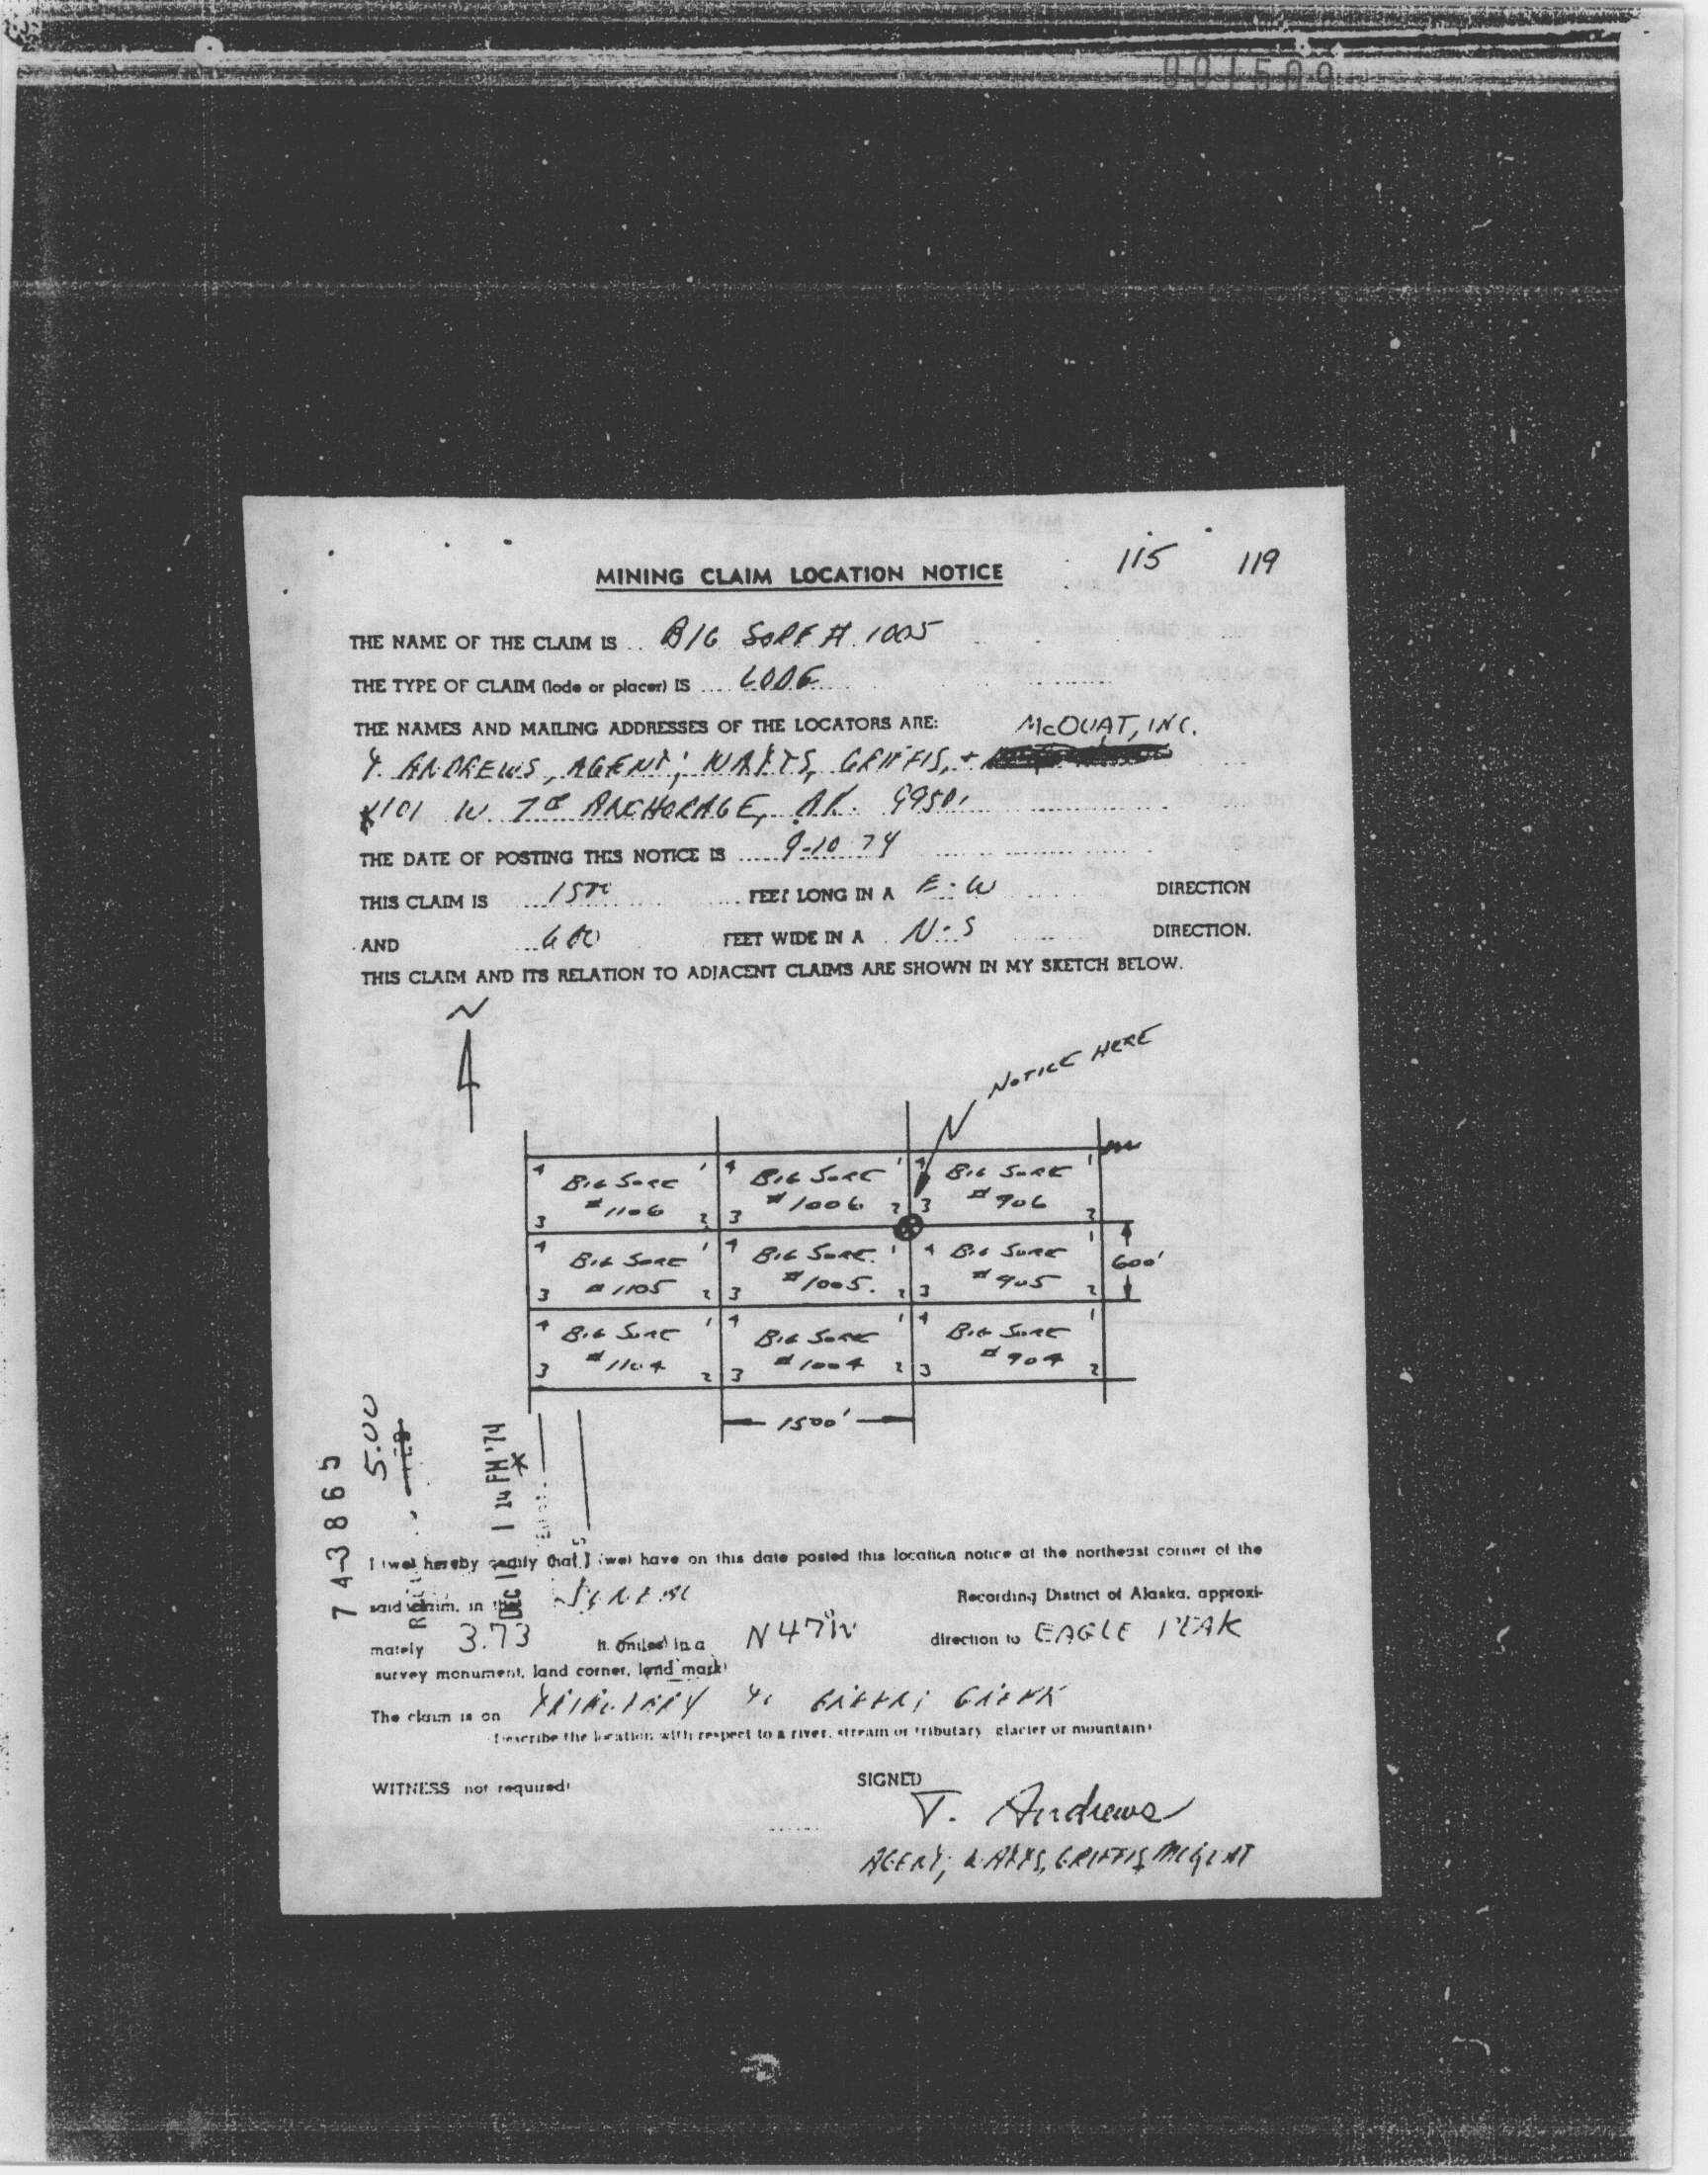 001509
115 119
MINING CLAIM LOCATION NOTICE
THE NAME OF THE CLAIM IS .. BIG SORE # 1005
THE TYPE OF CLAIM (lode or placer) IS .... LODE
THE NAMES AND MAILING ADDRESSES OF THE LOCATORS ARE: McQUAT, INC.
T. ANDREWS, AGENT; WATTS, GRIFFIS, +
101 W. 7th ANCHORAGE, AK. 99501
THE DATE OF POSTING THIS NOTICE IS ..... 9-10 74
THIS CLAIM IS 1500 FEET LONG IN A E-W DIRECTION
AND 600 FEET WIDE IN A N-S DIRECTION.
THIS CLAIM AND ITS RELATION TO ADJACENT CLAIMS ARE SHOWN IN MY SKETCH BELOW.
N
NOTICE HERE
4 BIG SORE 1 4 BIG SORE 1 4 BIG SORE 1
3 #1106 2 3 #1006 2 3 #906 2
4 BIG SORE 1 4 BIG SORE 1 4 BIG SORE 1 600'
3 #1105 2 3 #1005 2 3 #905 2
4 BIG SORE 1 4 BIG SORE 1 4 BIG SORE 1
3 #1104 2 3 #1004 2 3 #904 2
1500'
74-3865
5.00
DEC 1 1 14 PM '74
I (we) hereby certify that I (we) have on this date posted this location notice at the northeast corner of the
said claim, in the Recording District of Alaska, approxi-
mately 3.73 ft. (miles) in a N47W direction to EAGLE PEAK
survey monument, land corner, land mark)
The claim is on TRIBUTARY TO CREEK
(Describe the location with respect to a river, stream or tributary, glacier or mountain)
WITNESS (not required)
SIGNED
T. Andrews
AGENT, WATTS, GRIFFIS, MCQUAT